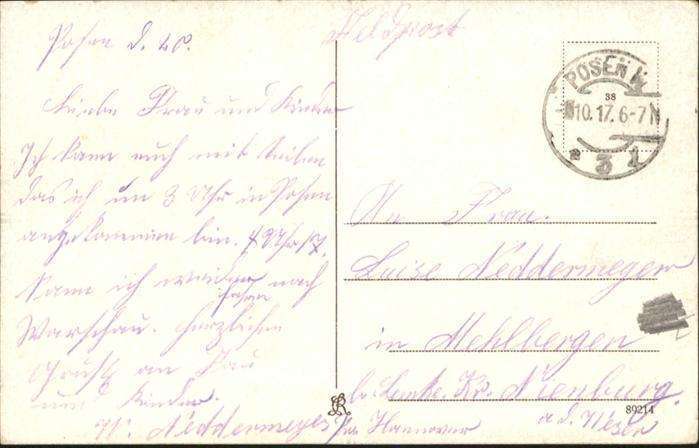 Posen d. 28.
Liebe Frau und Kinder
Ich kann euch mit teilen
das ich um 3 Uhr in Posen
angekommen bin.
kann ich weiter nach
fahren
Warschau. Herzlichen
Gruß an Frau
und Kinder
W. Neddermeyer
Feldpost
POSEN W.
38
10.17.6-7N
* 3 1
An Frau.
Luise Neddermeyer
in Mehlbergen
b. Lemke. Kr. Nienburg.
a. d. Weser
Pr. Hannover
89214